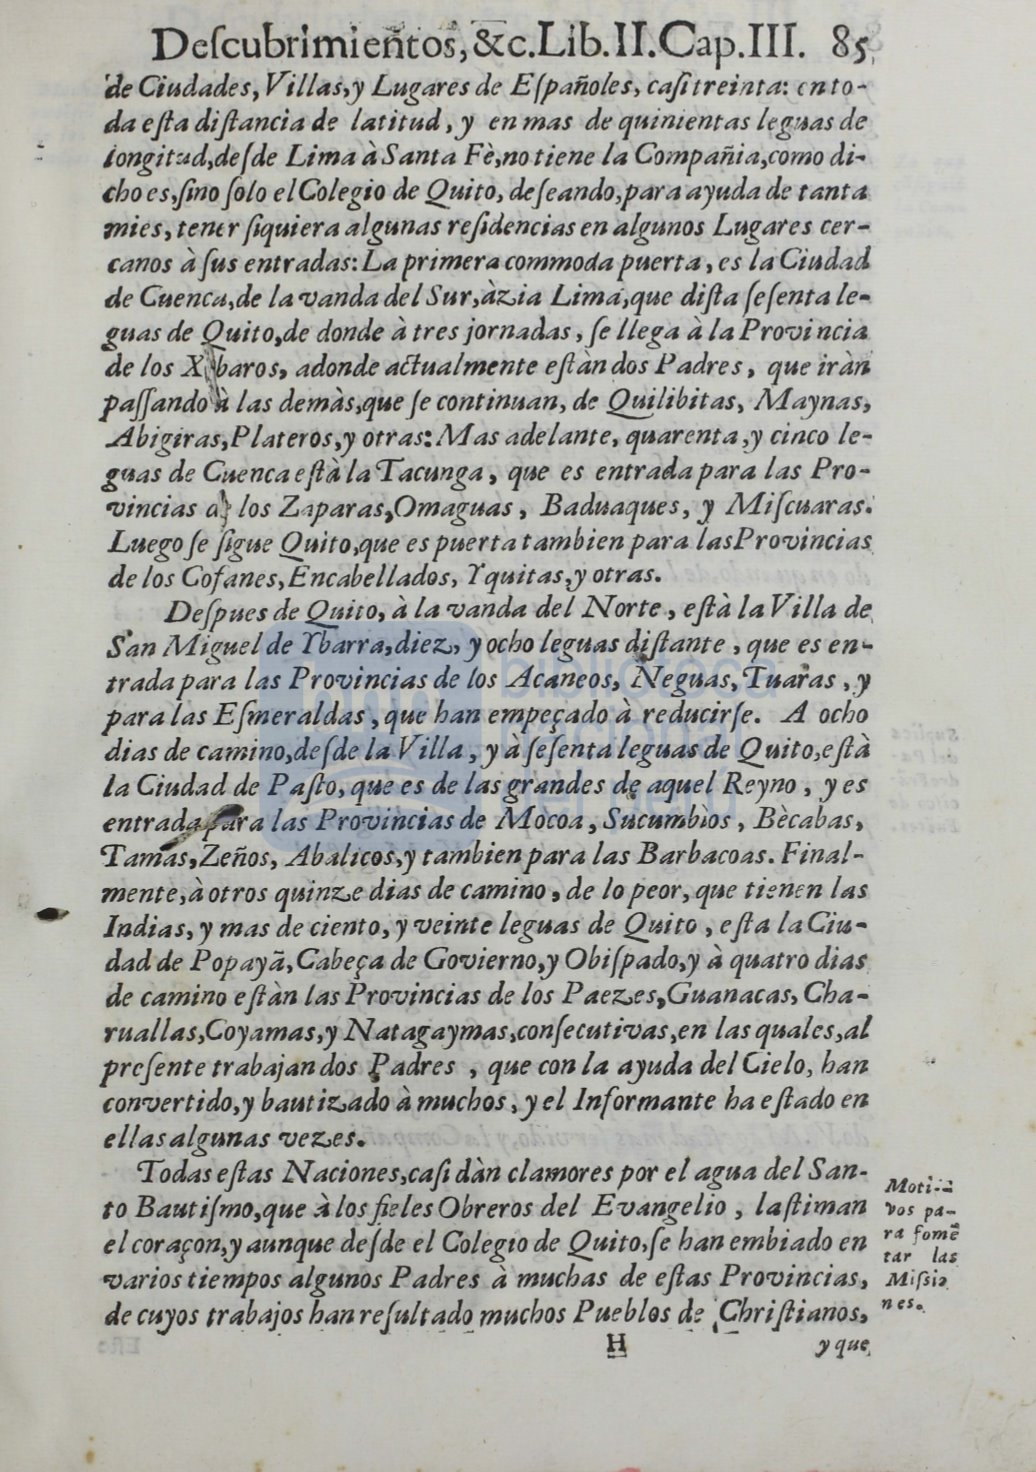 Deſcubrimientos, &c. Lib. II. Cap. III. 85
de Ciudades, Villas, y Lugares de Eſpañoles, caſi treinta: en to-
da eſta diſtancia de latitud, y en mas de quinientas leguas de
longitud, deſde Lima à Santa Fè, no tiene la Compañia, como di-
cho es, ſino ſolo el Colegio de Quito, deſeando, para ayuda de tanta
mies, tener ſiquiera algunas reſidencias en algunos Lugares cer-
canos à ſus entradas: La primera commoda puerta, es la Ciudad
de Cuenca, de la vanda del Sur, àzia Lima, que diſta ſeſenta le-
guas de Quito, de donde à tres jornadas, ſe llega à la Provincia
de los Xibaros, adonde actualmente eſtàn dos Padres, que iràn
paſſando à las demàs, que ſe continuan, de Quilibitas, Maynas,
Abigiras, Plateros, y otras: Mas adelante, quarenta, y cinco le-
guas de Cuenca eſtà la Tacunga, que es entrada para las Pro-
vincias a los Zaparas, Omaguas, Baduaques, y Miſcuaras.
Luego ſe ſigue Quito, que es puerta tambien para las Provincias
de los Cofanes, Encabellados, Yquitas, y otras.
Deſpues de Quito, à la vanda del Norte, eſtà la Villa de
San Miguel de Ybarra, diez, y ocho leguas diſtante, que es en-
trada para las Provincias de los Acaneos, Neguas, Tuaras, y
para las Eſmeraldas, que han empeçado à reducirſe. A ocho
dias de camino, deſde la Villa, y à ſeſenta leguas de Quito, eſtà
la Ciudad de Paſto, que es de las grandes de aquel Reyno, y es
entrada para las Provincias de Mocoa, Sucumbìos, Bècabas,
Tamas, Zeños, Abalicos, y tambien para las Barbacoas. Final-
mente, à otros quinze dias de camino, de lo peor, que tienen las
Indias, y mas de ciento, y veinte leguas de Quito, eſta la Ciu-
dad de Popayã, Cabeça de Govierno, y Obiſpado, y à quatro dias
de camino eſtàn las Provincias de los Paezes, Guanacas, Cha-
ruallas, Coyamas, y Natagaymas, conſecutivas, en las quales, al
preſente trabajan dos Padres, que con la ayuda del Cielo, han
convertido, y bautizado à muchos, y el Informante ha eſtado en
ellas algunas vezes.
Todas eſtas Naciones, caſi dàn clamores por el agua del San-
to Bautiſmo, que à los fieles Obreros del Evangelio, laſtiman
el coraçon, y aunque deſde el Colegio de Quito, ſe han embiado en
varios tiempos algunos Padres à muchas de eſtas Provincias,
de cuyos trabajos han reſultado muchos Pueblos de Chriſtianos,
Moti-
vos pa-
ra fomẽ
tar las
Miſsio
nes.
H
y que
biblioteca
nacional
del perú